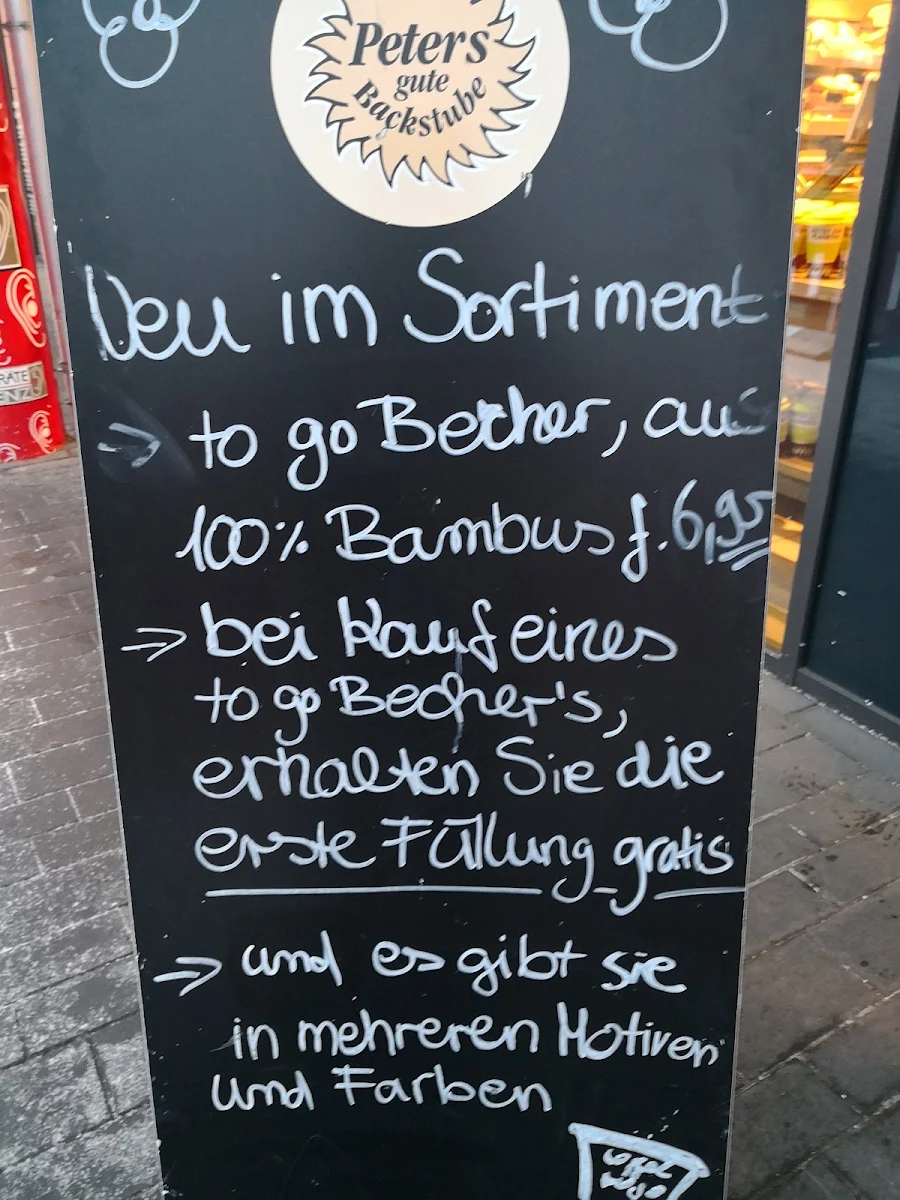 Peters
gute
Backstube
Neu im Sortiment
→ to go Becher, aus
100% Bambus f. 6,95
→ bei Kauf eines
to go Becher's,
erhalten Sie die
erste Füllung gratis
→ und es gibt sie
in mehreren Motiven
und Farben